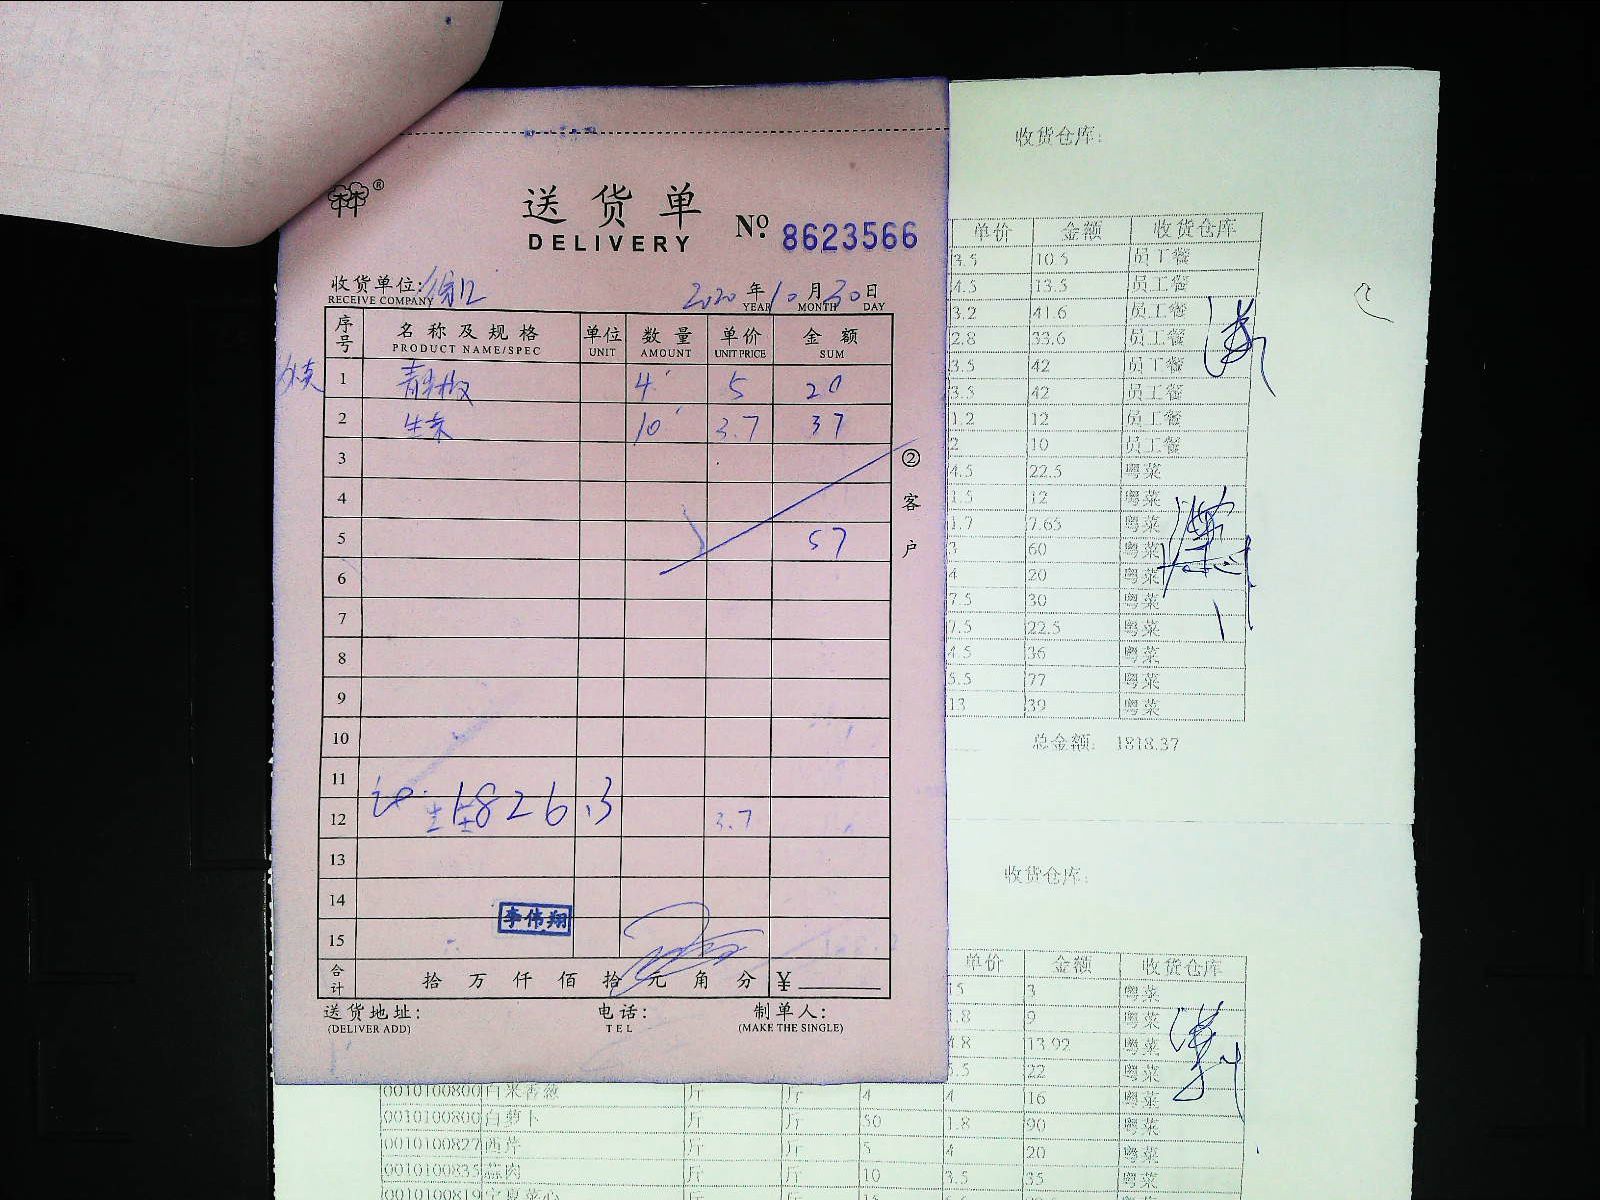 送货单
DELIVERY
№ 8623566
收货单位: 徐汇 2020年10月30日
RECEIVE COMPANY YEAR MONTH DAY
序号 名称及规格 单位 数量 单价 金额
PRODUCT NAME/SPEC UNIT AMOUNT UNIT PRICE SUM
1 青尖椒 4 5 20
2 生菜 10 3.7 37
3
4
5 57
6
7
8
9
10
11
12 1826.3 3.7
13
14
李伟翔
15
合计 拾 万 仟 佰 拾 元 角 分 ¥
送货地址: 电话: 制单人:
(DELIVER ADD) TEL (MAKE THE SINGLE)
②客户
收货仓库:
单价 金额 收货仓库
3.5 10.5 员工餐
4.5 13.5 员工餐
3.2 41.6 员工餐
2.8 33.6 员工餐
3.5 42 员工餐
3.5 42 员工餐
1.2 12 员工餐
2 10 员工餐
4.5 22.5 粤菜
1.5 12 粤菜
1.7 7.65 粤菜
3 60 粤菜
4 20 粤菜
7.5 30 粤菜
7.5 22.5 粤菜
4.5 36 粤菜
5.5 77 粤菜
13 39 粤菜
总金额: 1818.37
收货仓库:
单价 金额 收货仓库
15 3 粤菜
1.8 9 粤菜
4.8 13.92 粤菜
5.5 22 粤菜
0010100800 白米苋 斤 斤 4 4 16 粤菜
0010100800 白萝卜 斤 斤 50 1.8 90 粤菜
0010100827 西芹 斤 斤 5 4 20 粤菜
0010100835 蒜肉 斤 斤 10 3.5 35 粤菜
0010100819 宁夏菜心 斤 斤